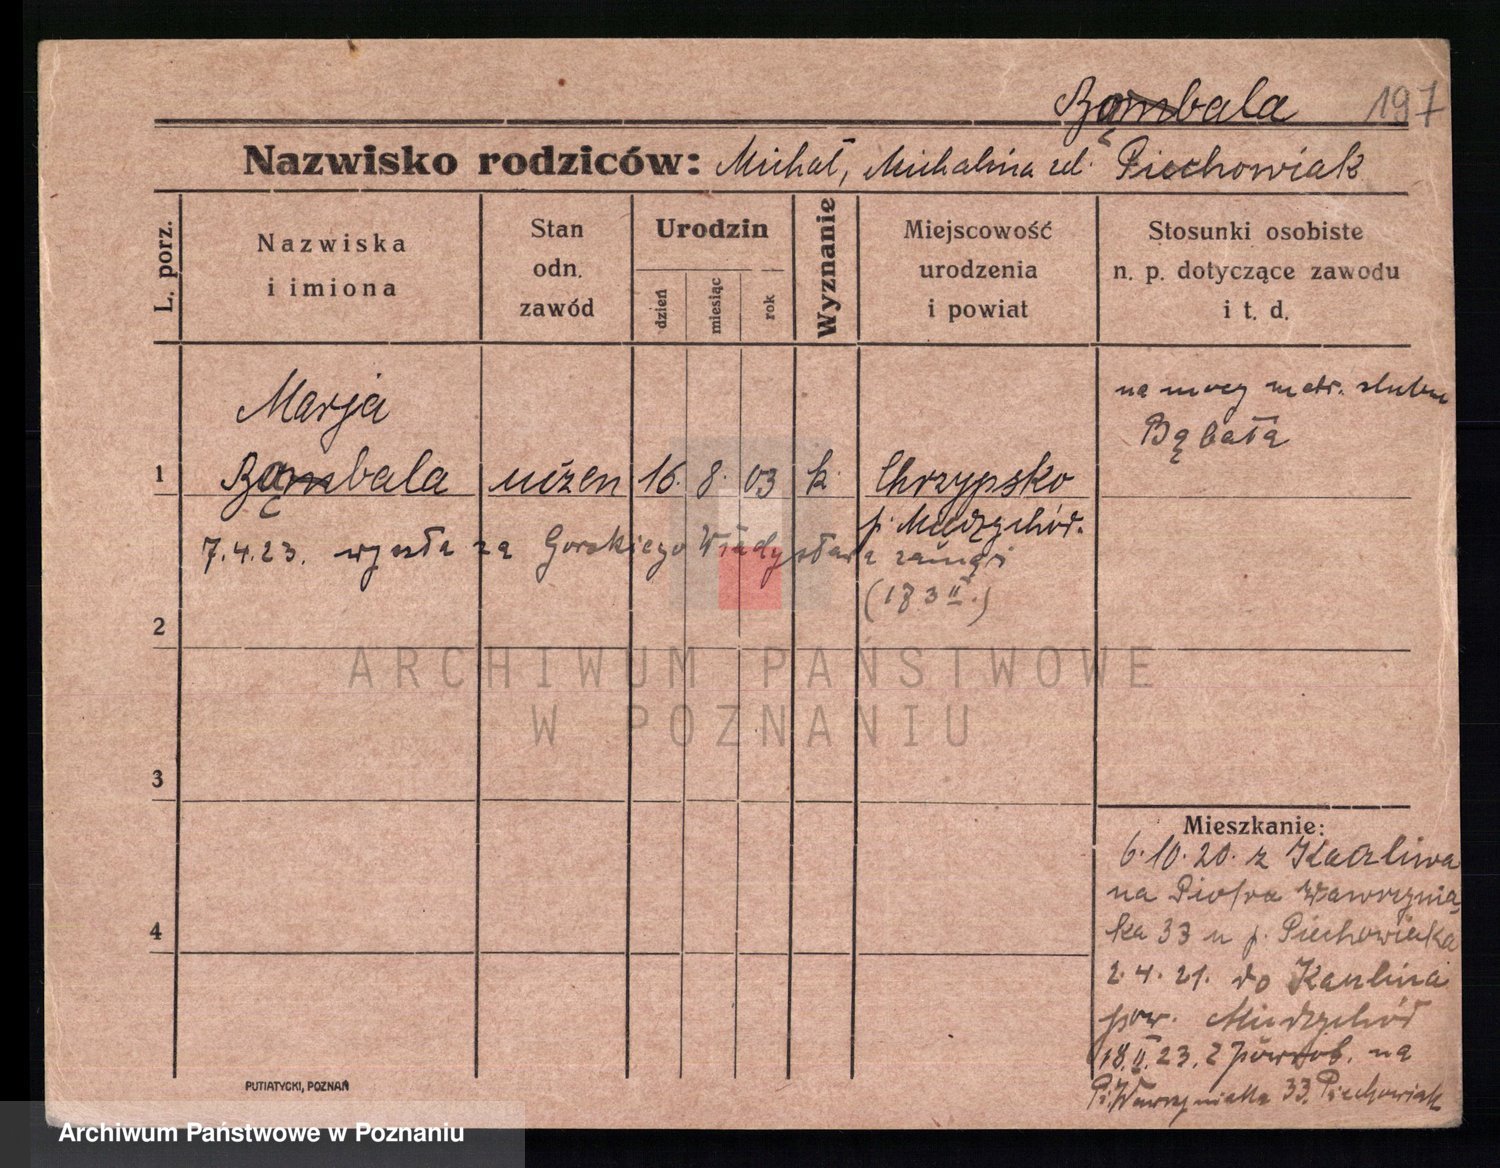 Bąmbala 197
Nazwisko rodziców: Michał, Michalina zd. Piechowiak
L. porz.
Nazwiska
i imiona
Stan
odn.
zawód
Urodzin
dzień
miesiąc
rok
Wyznanie
Miejscowość
urodzenia
i powiat
Stosunki osobiste
n. p. dotyczące zawodu
i t. d.
Marja
1 Bąmbala uczen 16. 8. 03 k. Chrzypsko
p. Międzychód.
na mocy metr. ślubu
Bąbała
7.4.23. wyszła za Gorskiego Władysława
(183 II.)
2
3
4
Mieszkanie:
6.10.20. z
na Piotra Wawrzynia
ka 33 u p. Piechowiaka
2.4.21. do
pow. Międzychód
18.II.23. z powrob. na
P. Wawrzyniaka 33. Piechowiak
PUTIATYCKI, POZNAŃ
ARCHIWUM PAŃSTWOWE
W POZNANIU
Archiwum Państwowe w Poznaniu